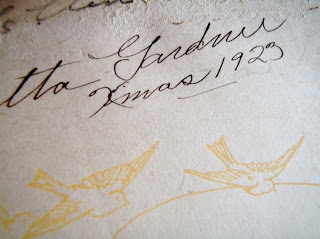 tta Gardner
Xmas 1923